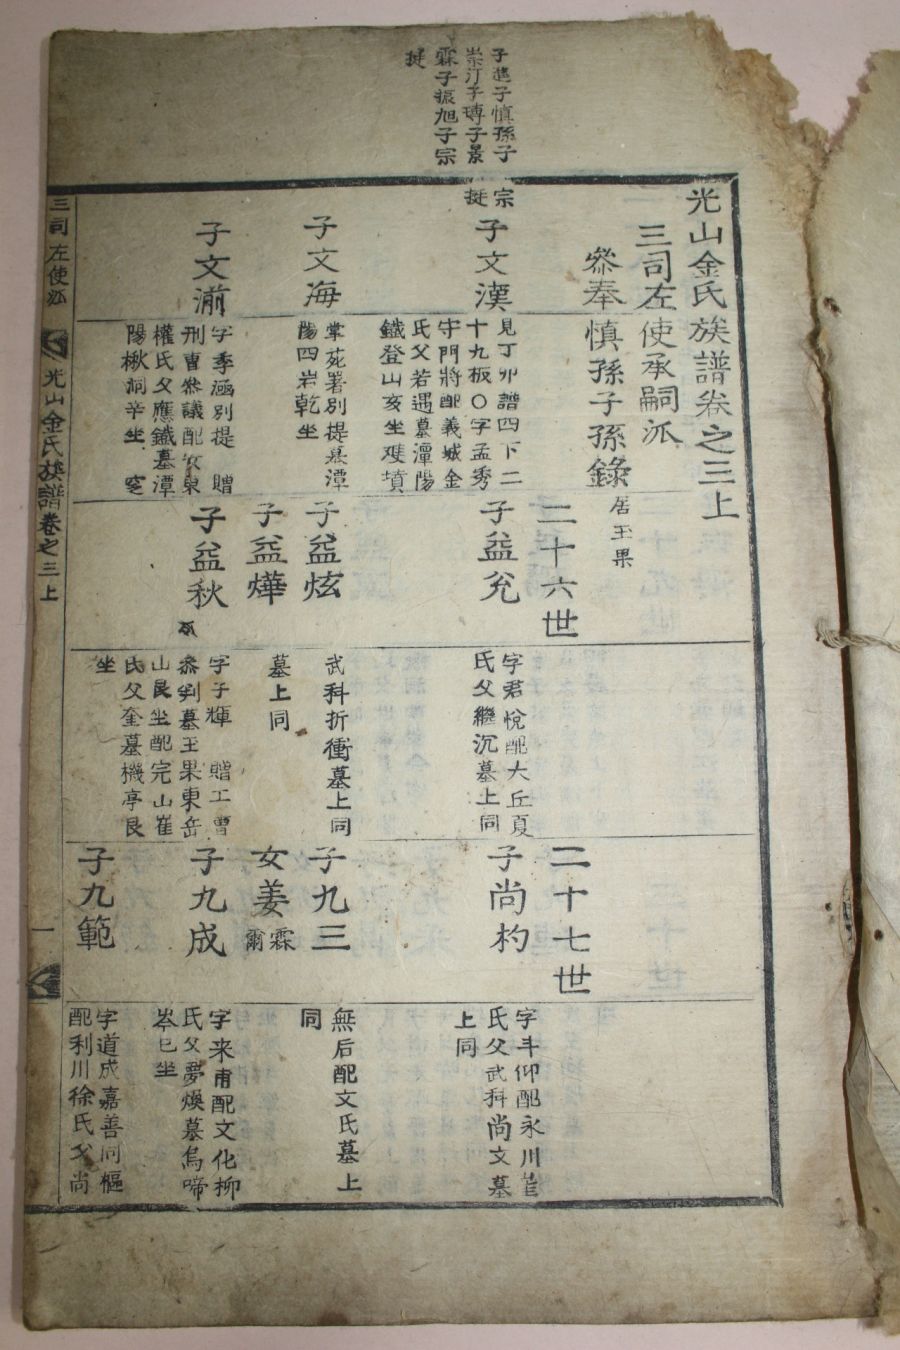 子建子慎孫子
崇汀子㻞子景
霖子振旭子宗
挻
光山金氏族譜卷之三上
三司左使承嗣派
叅奉慎孫子孫錄
居玉果
宗
挻
子文漢
見丁卯譜四下二
十九板〇字孟秀
守門將配義城金
氏父若遇墓潭陽
鐵登山亥坐雙墳
子文海
掌苑署別提墓潭
陽四岩乾坐
子文湔
字季涵別提 贈
刑曹叅議配安東
權氏父應鐵墓潭
陽楸洞辛坐 窆
二十六世
子益兊
字君悅配大丘夏
氏父繼沉墓上同
子益炫
武科折衝墓上同
子益燁
墓上同
子益秋
字子輝 贈工曹
叅判墓玉果東岳
山艮坐配完山崔
氏父奎墓機亭艮
坐
二十七世
子尚杓
字斗仰配永川
氏父武科尚文墓
上同
子九三
無后配文氏墓上
同
女姜霖爾
子九成
字来甫配文化柳
氏父夢煥墓烏啼
岑巳坐
子九範
字道成嘉善同樞
配利川徐氏父尚
三司左使派
光山金氏族譜卷之三上
一